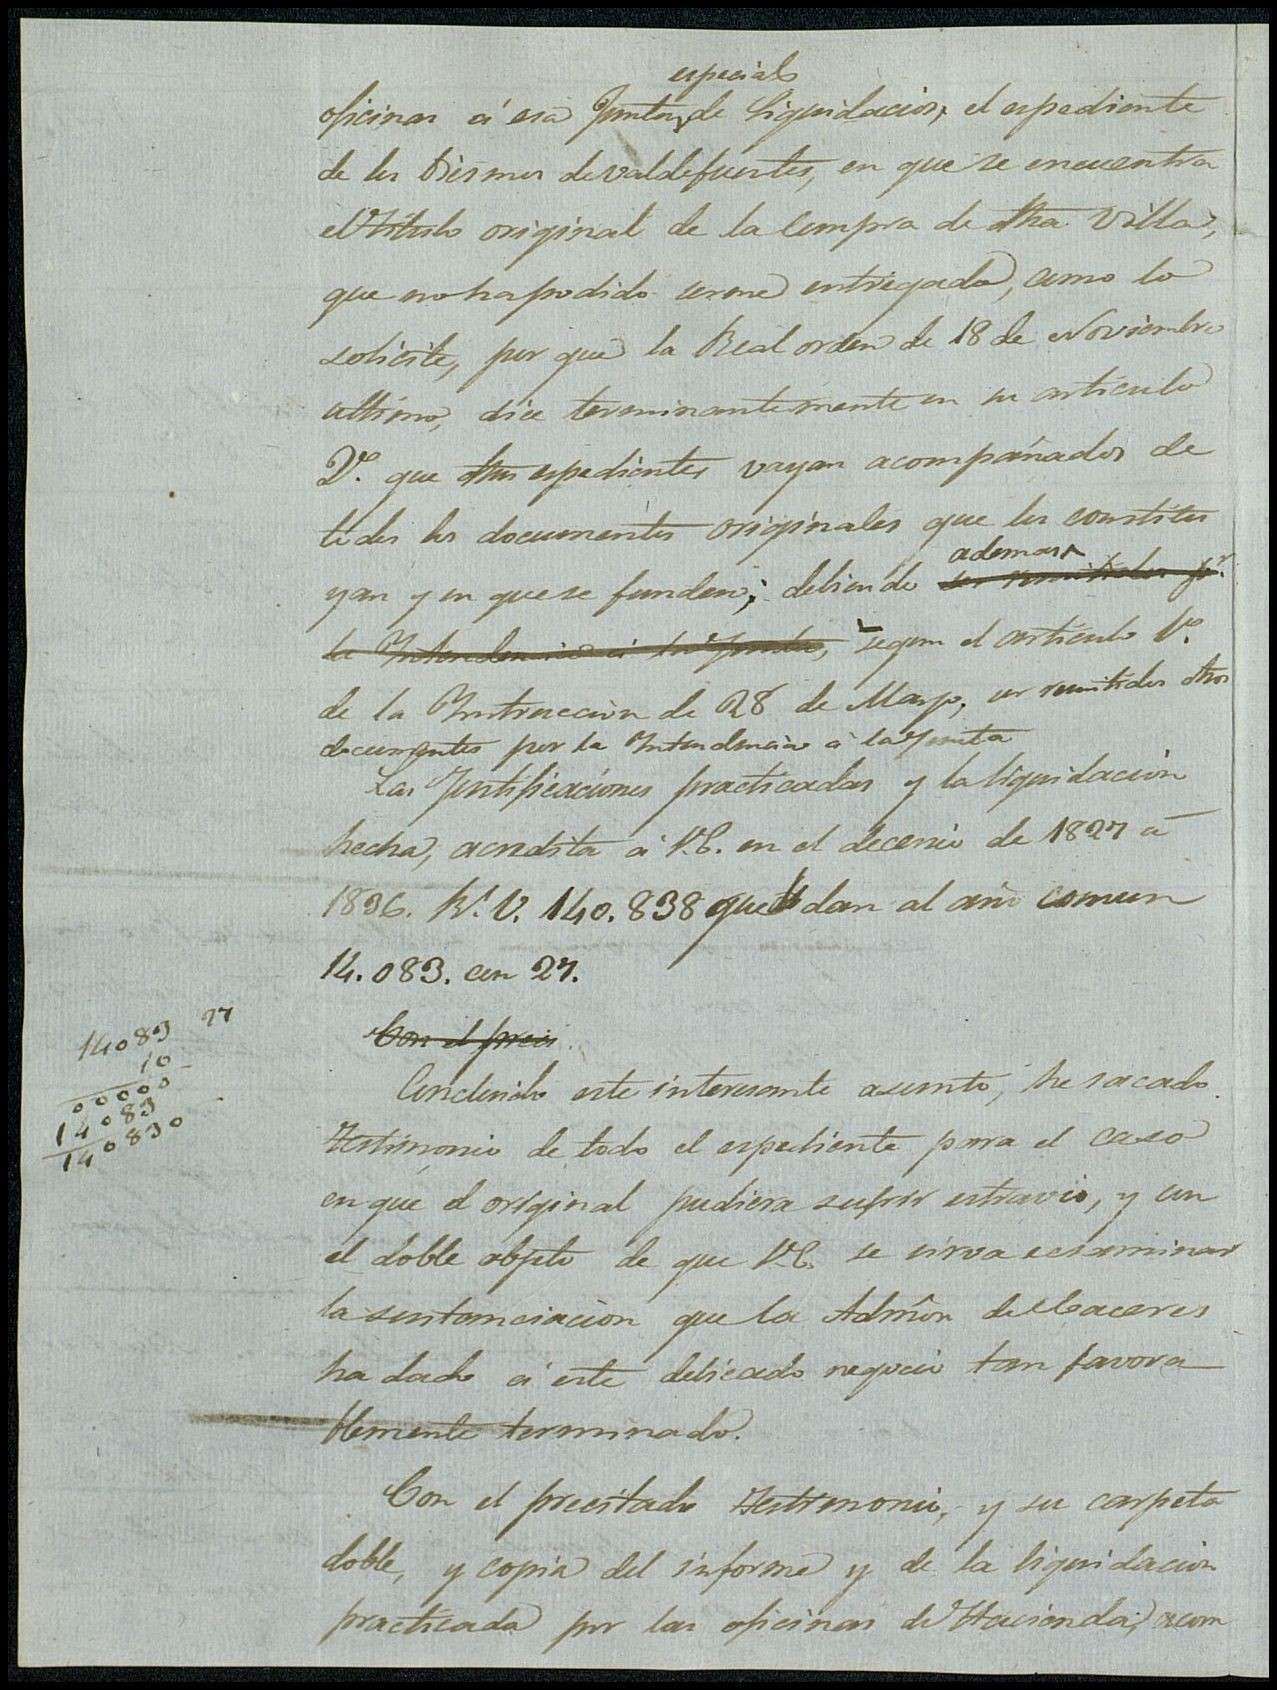 especial
oficinas á esa Junta, de Liquidacion, el espediente
de los Diesmos de Valdefuentes, en que se encuentra
el titulo original de la Compra de dha Villa,
que no ha podido serme entregado, como lo
solicité, por que la Real orden de 18 de Noviembre
ultimo, dice terminantemente en su articulo
2º. que dhos espedientes vayan acompañados de
todos los documentos originales que los constitu
ademas
yan y en que se funden; debiendo ser remitidos pr.
la Intendencia á la Junta, segun el articulo 1º.
de la Instruccion de 28 de Mayo, ser remitidos dhos
documentos por la Intendencia á la Junta
Las Justificaciones practicadas y la liquidacion
hecha, acredita á V.E. en el decenio de 1827 á
1836. Rs. V. 140.838 que dan al año comun
14.083. con 27.
14083 27
10
00000
14083
140830
Con el preci
Concluido este interesante asunto, he sacado
Testimonio de todo el espediente para el caso
en que el original pudiera sufrir estravio, y con
el doble objeto de que V.E. se sirva ecsaminar
la sustanciacion que la Admôn de Caceres
ha dado á este delicado negocio tan favora
blemente terminado.
Con el precitado Testimonio, y su carpeta
doble, y copia del informe y de la liquidacion
practicada por las oficinas de Hacienda, acom